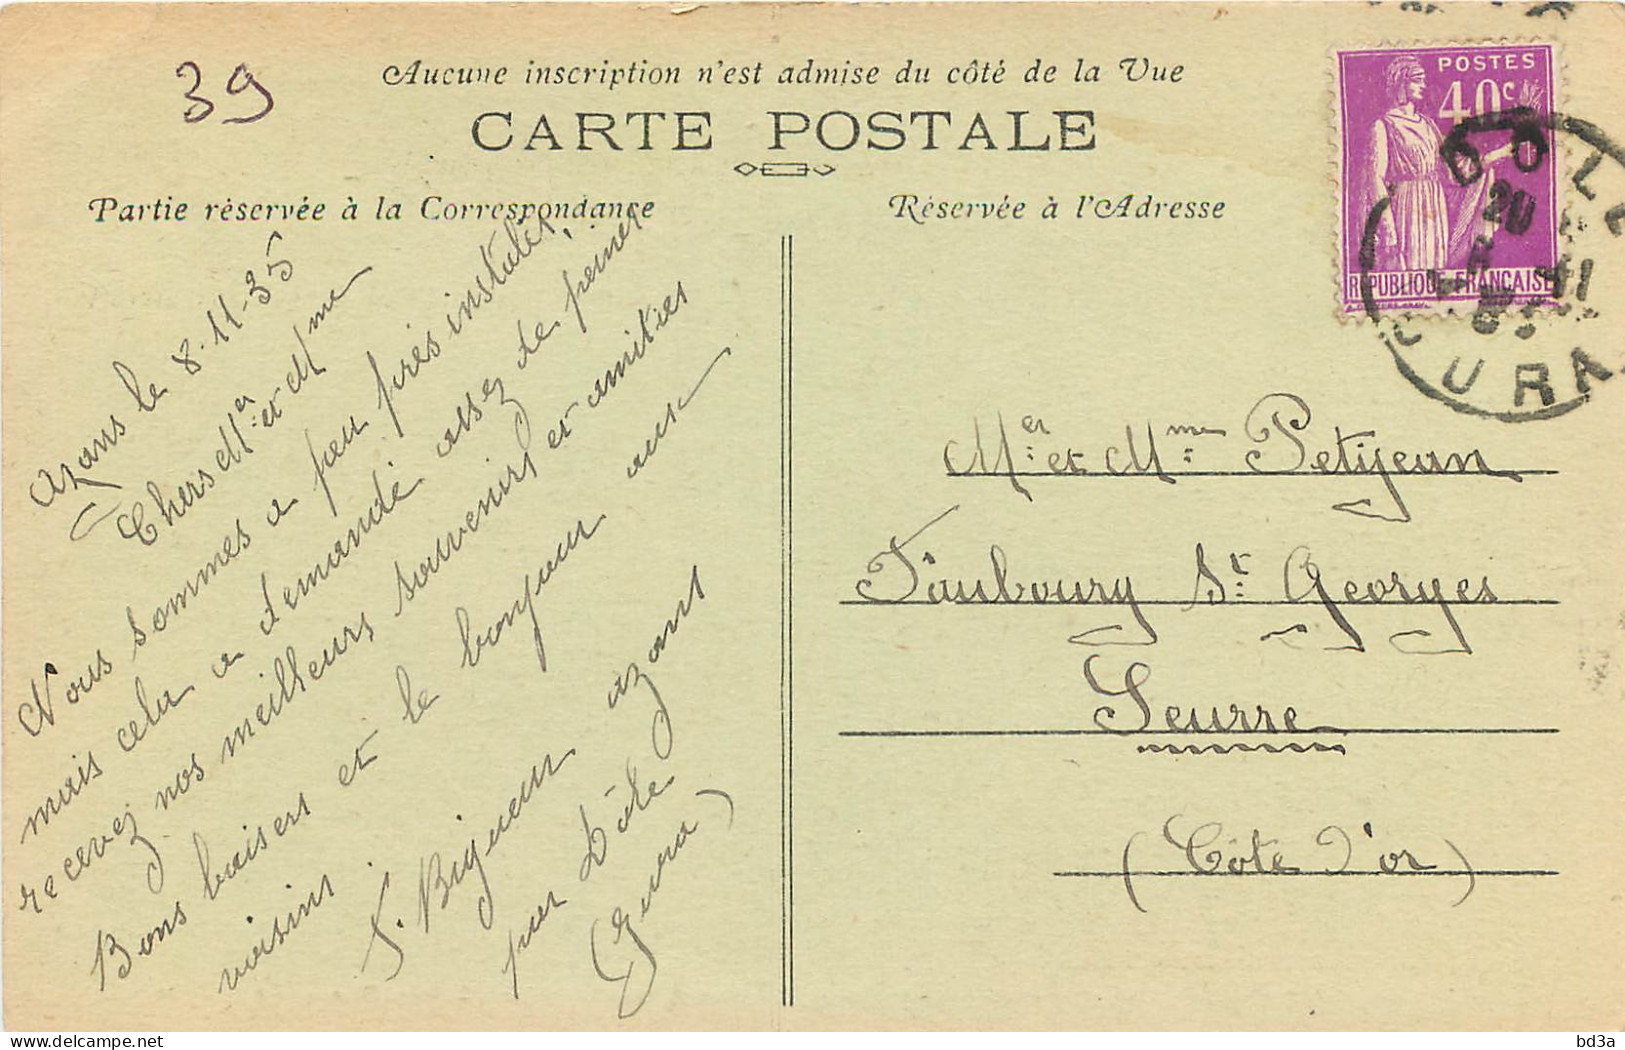 39
Aucune inscription n'est admise du côté de la Vue
CARTE POSTALE
Partie réservée à la Correspondance
Réservée à l'Adresse
POSTES
40c
REPUBLIQUE FRANÇAISE
DOLE
20
11
JURA
Azans le 8.11.35
Chers Mr et Mme
Nous sommes a peu près instalés,
mais cela a demandé assez de peines
recevez nos meilleurs souvenirs et amitiés
Bons baisers et le bonjour aux
voisins.
Azans
par Dôle
(Jura)
Mer et Mme Petijean
Faubourg St Georges
Seurre
(Côte d'or)
delcampe.net
bd3a